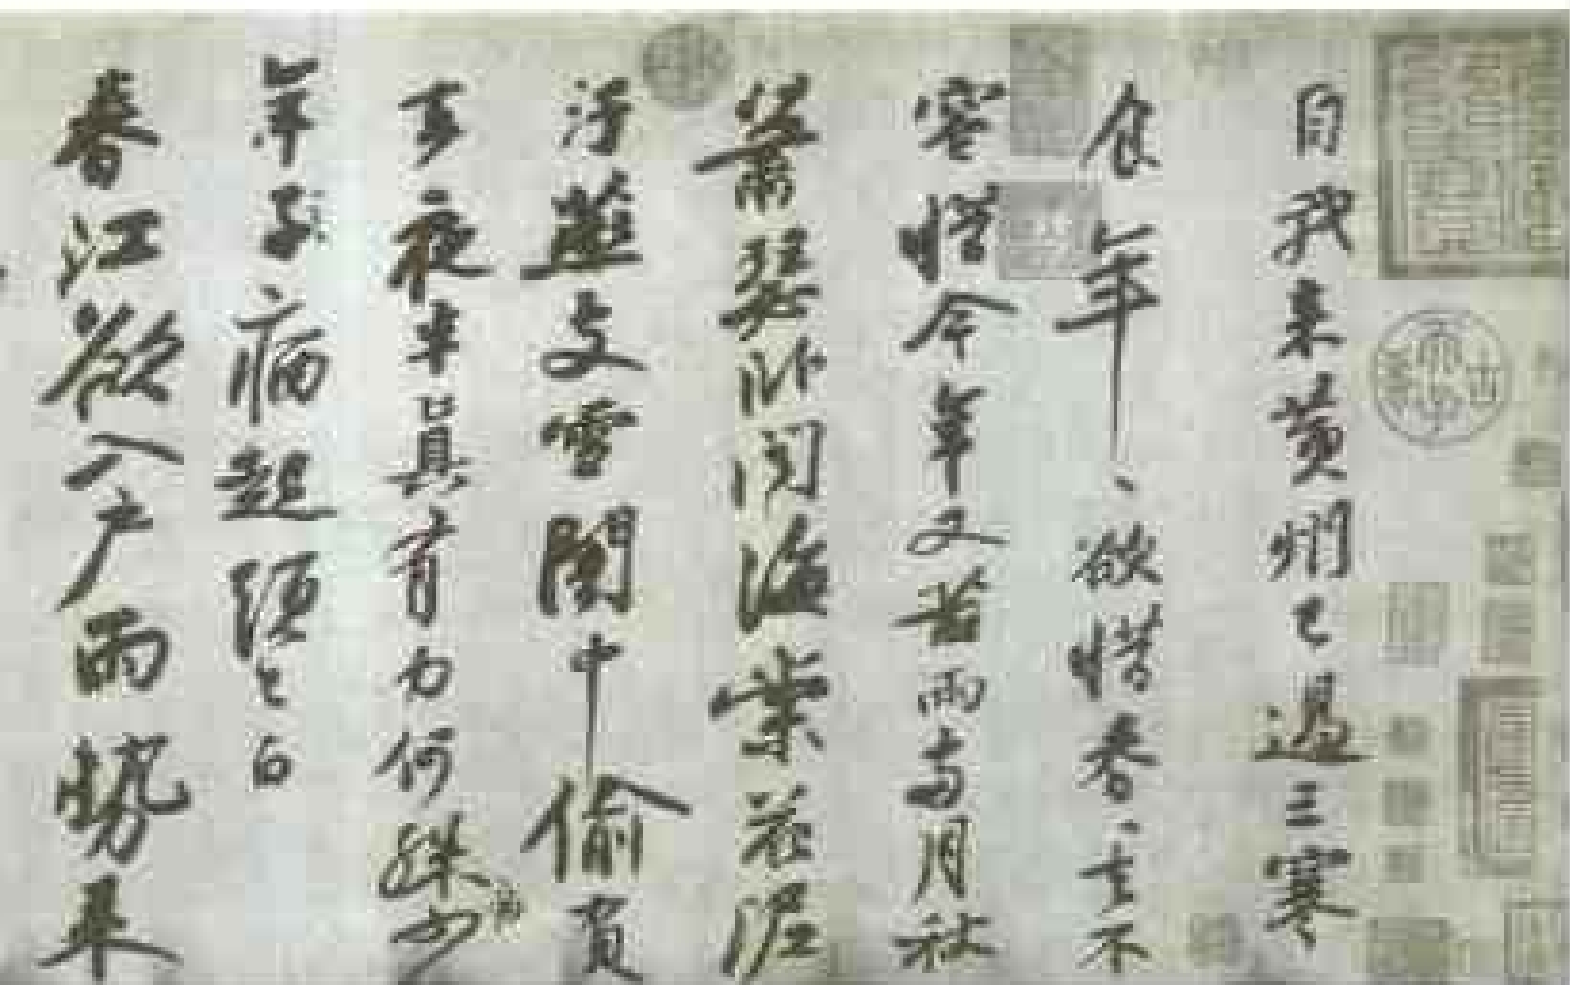 自我来黄州已過三寒
食年、欲惜春、去不
容惜今年又苦雨兩月秋
蕭瑟卧聞海棠花泥
汙燕支雪闇中偷負
去夜半真有力何殊少
年子病起頭已白
春江欲入户雨勢来